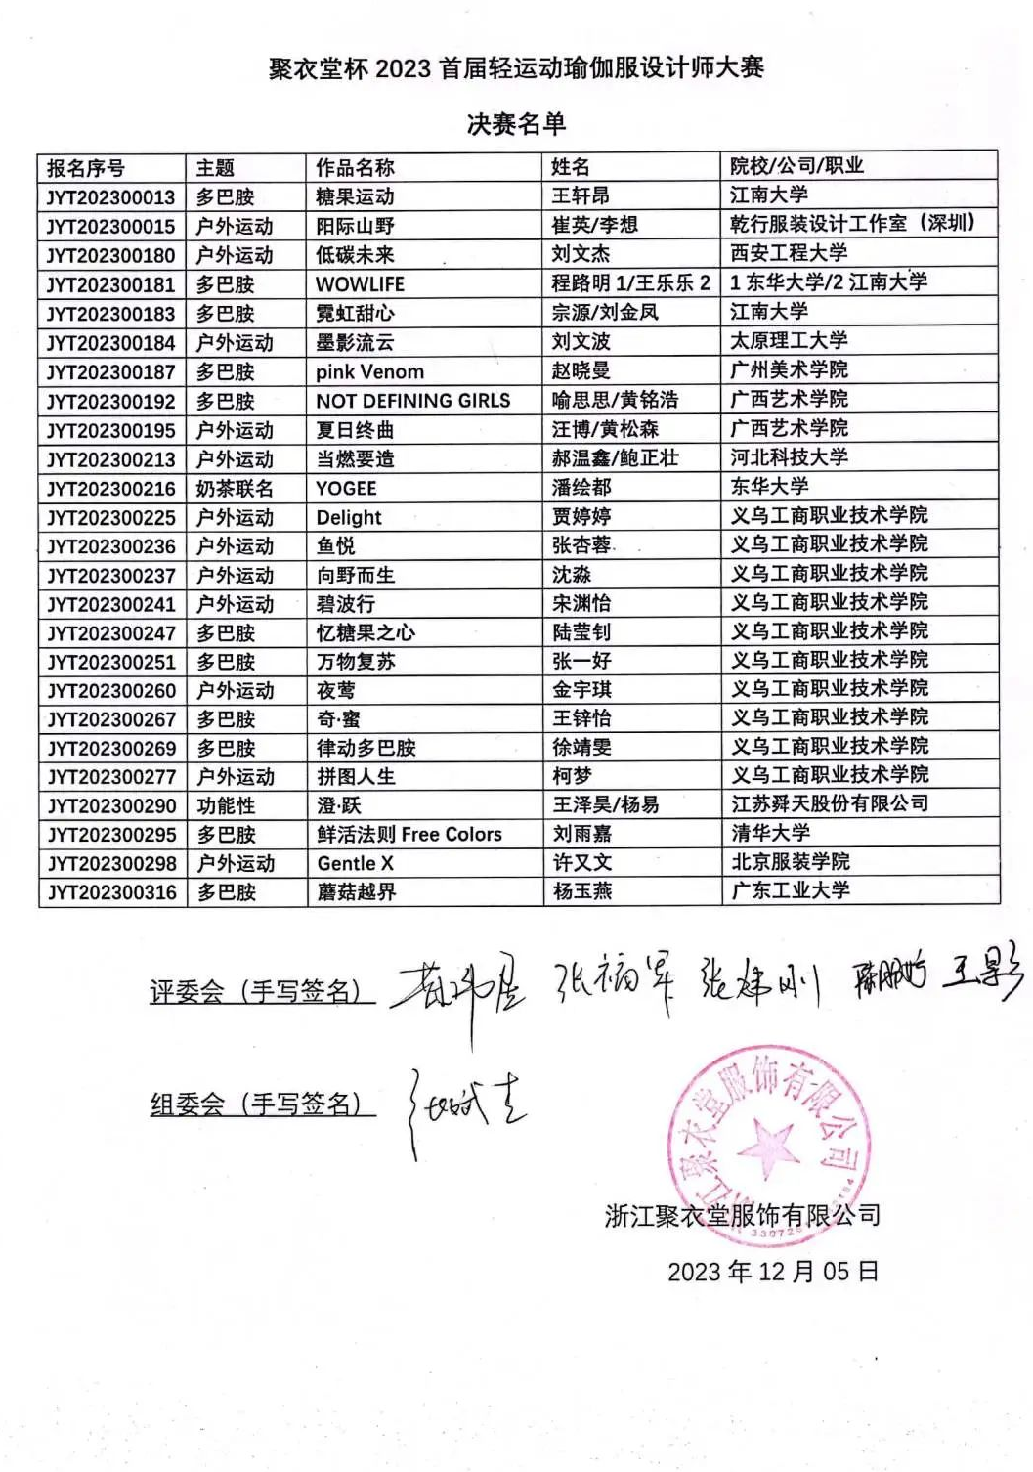 聚衣堂杯 2023 首届轻运动瑜伽服设计师大赛
决赛名单
报名序号 主题 作品名称 姓名 院校/公司/职业
JYT202300013 多巴胺 糖果运动 王轩昂 江南大学
JYT202300015 户外运动 阳际山野 崔英/李想 乾行服装设计工作室（深圳）
JYT202300180 户外运动 低碳未来 刘文杰 西安工程大学
JYT202300181 多巴胺 WOWLIFE 程路明 1/王乐乐 2 1 东华大学/2 江南大学
JYT202300183 多巴胺 霓虹甜心 宗源/刘金凤 江南大学
JYT202300184 户外运动 墨影流云 刘文波 太原理工大学
JYT202300187 多巴胺 pink Venom 赵晓曼 广州美术学院
JYT202300192 多巴胺 NOT DEFINING GIRLS 喻思思/黄铭浩 广西艺术学院
JYT202300195 户外运动 夏日终曲 汪博/黄松森 广西艺术学院
JYT202300213 户外运动 当燃要造 郝温鑫/鲍正壮 河北科技大学
JYT202300216 奶茶联名 YOGEE 潘绘都 东华大学
JYT202300225 户外运动 Delight 贾婷婷 义乌工商职业技术学院
JYT202300236 户外运动 鱼悦 张杏蓉 义乌工商职业技术学院
JYT202300237 户外运动 向野而生 沈淼 义乌工商职业技术学院
JYT202300241 户外运动 碧波行 宋渊怡 义乌工商职业技术学院
JYT202300247 多巴胺 忆糖果之心 陆莹钊 义乌工商职业技术学院
JYT202300251 多巴胺 万物复苏 张一好 义乌工商职业技术学院
JYT202300260 户外运动 夜莺 金宇琪 义乌工商职业技术学院
JYT202300267 多巴胺 奇·蜜 王锌怡 义乌工商职业技术学院
JYT202300269 多巴胺 律动多巴胺 徐靖雯 义乌工商职业技术学院
JYT202300277 户外运动 拼图人生 柯梦 义乌工商职业技术学院
JYT202300290 功能性 澄·跃 王泽昊/杨易 江苏舜天股份有限公司
JYT202300295 多巴胺 鲜活法则 Free Colors 刘雨嘉 清华大学
JYT202300298 户外运动 Gentle X 许又文 北京服装学院
JYT202300316 多巴胺 蘑菇越界 杨玉燕 广东工业大学
评委会（手写签名） 张福军 张建刚 王影
组委会（手写签名）
浙江聚衣堂服饰有限公司
浙江聚衣堂服饰有限公司
2023 年 12 月 05 日